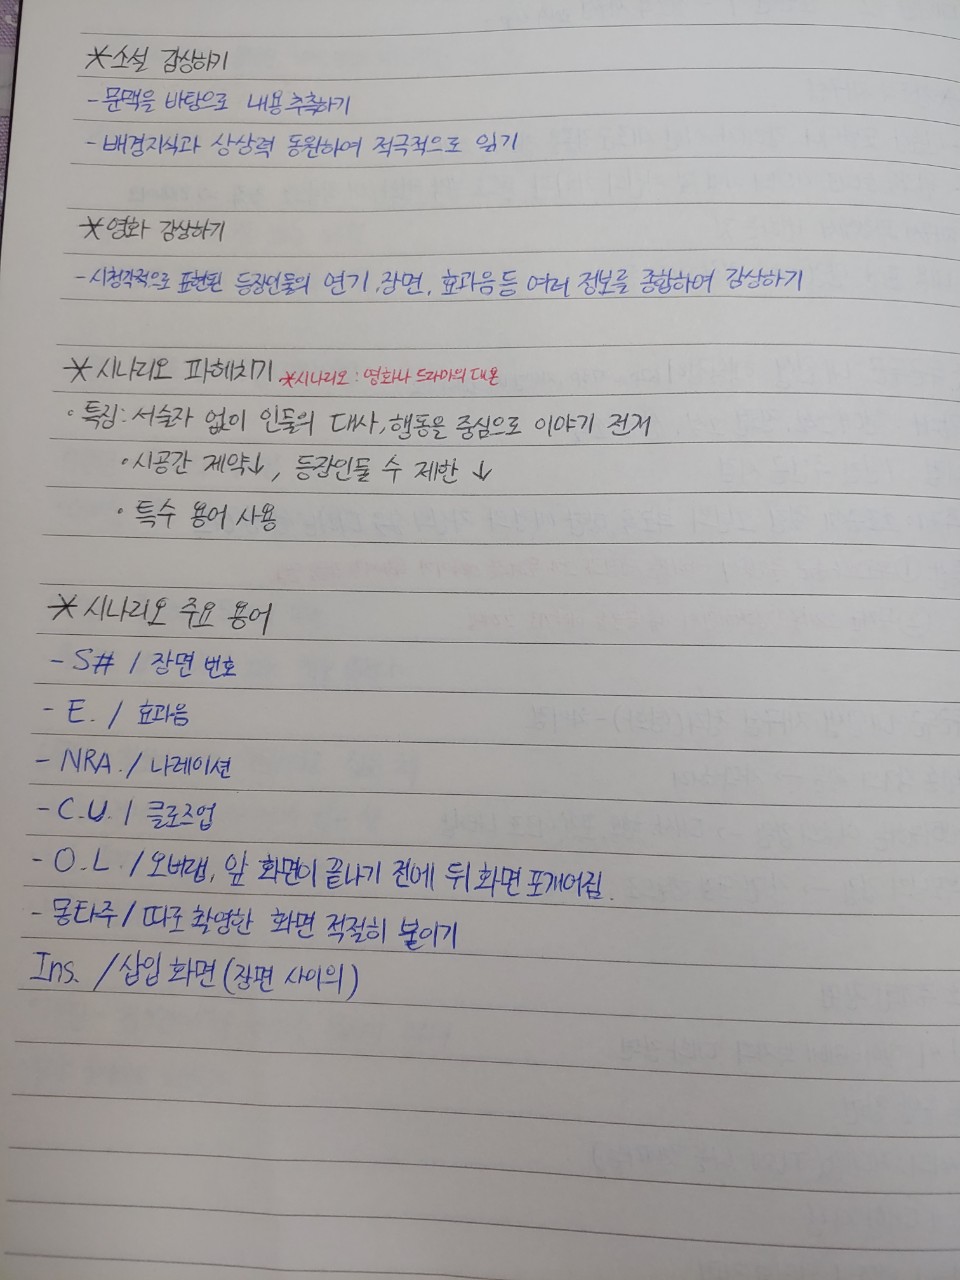 *소설 감상하기
-문맥을 바탕으로 내용추측하기
-배경지식과 상상력 동원하여 적극적으로 읽기
*영화 감상하기
-시청각적으로 표현된 등장인물의 연기, 장면, 효과음등 여러 정보를 종합하여 감상하기
*시나리오 파헤치기 *시나리오 : 영화나 드라마의 대본
·특징: 서술자 없이 인물의 대사, 행동을 중심으로 이야기 전개
·시공간 제약↓, 등장인물 수 제한 ↓
·특수 용어 사용
*시나리오 주요 용어
-S# / 장면 번호
-E. / 효과음
-NRA. / 나레이션
-C.U. / 클로즈업
-O.L. / 오버랩, 앞 화면이 끝나기 전에 뒤 화면 포개어짐.
-몽타주 / 따로 촬영한 화면 적절히 붙이기
Ins. / 삽입 화면 (장면 사이의)